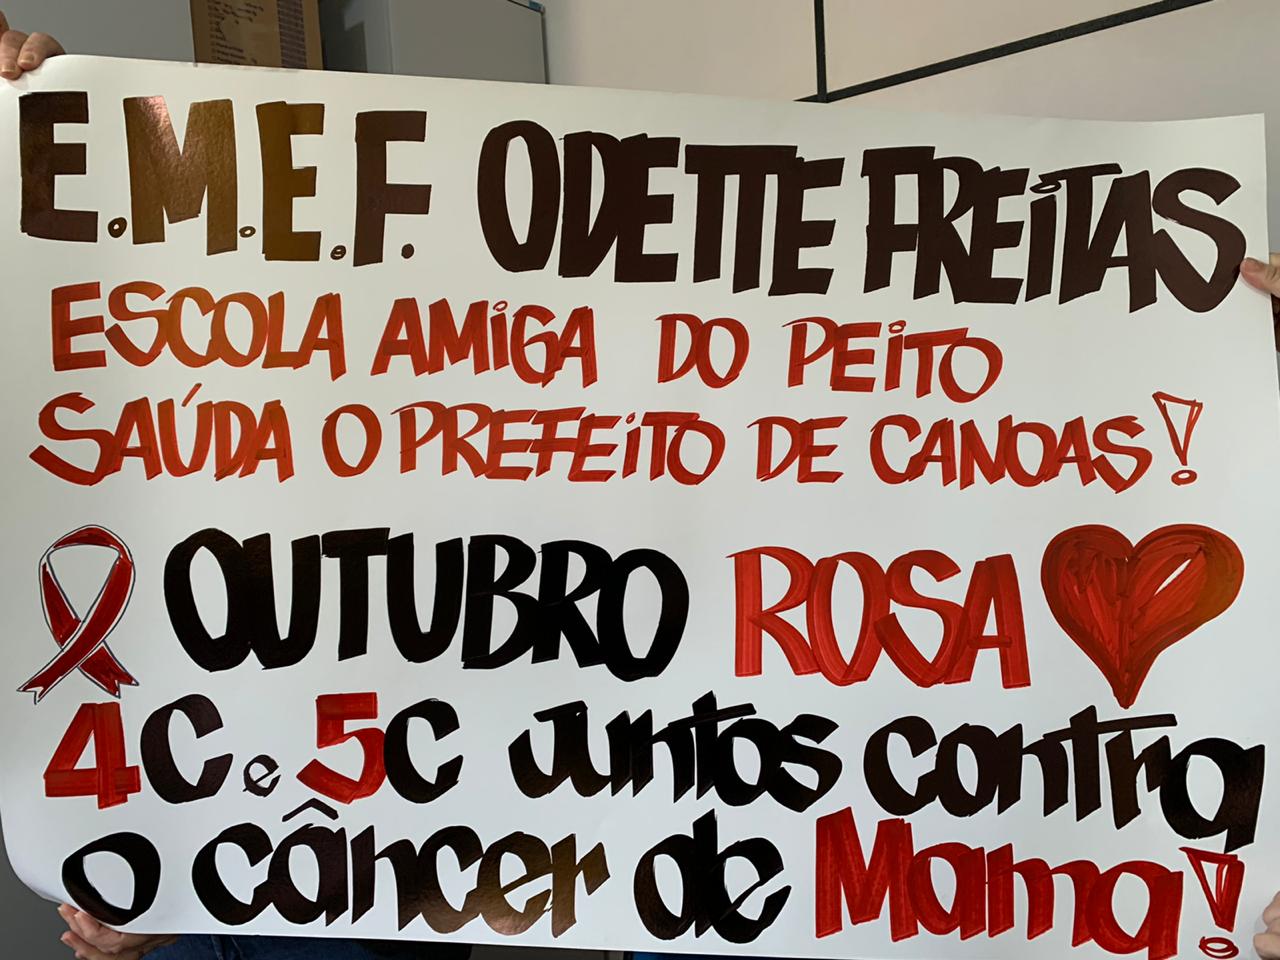 E.M.E.F. ODETTE FREITAS
ESCOLA AMIGA DO PEITO
SAÚDA O PREFEITO DE CANOAS!
OUTUBRO ROSA
4C e 5C juntos contra
o câncer de Mama!